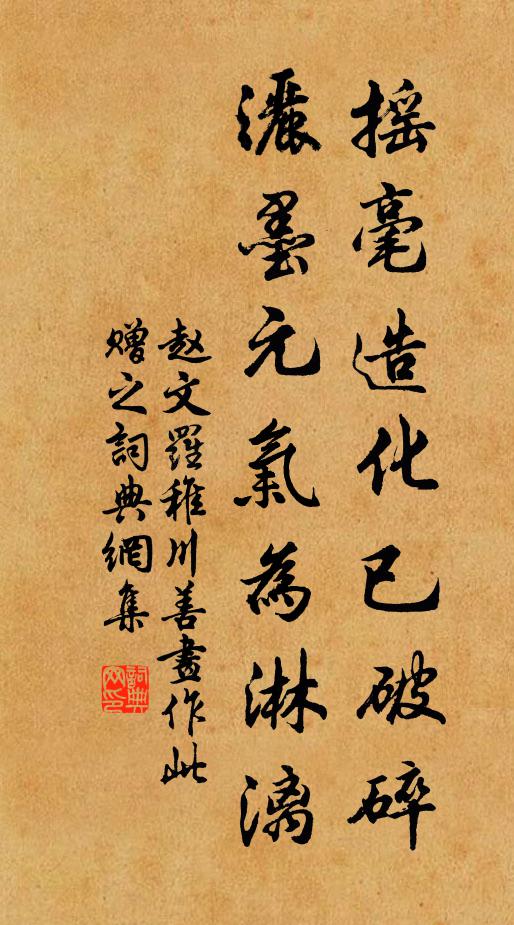 摇毫造化已破碎
灑墨元氣為淋漓
赵文羅稚川善畫作此
赠之詞典網集
詞典
网印